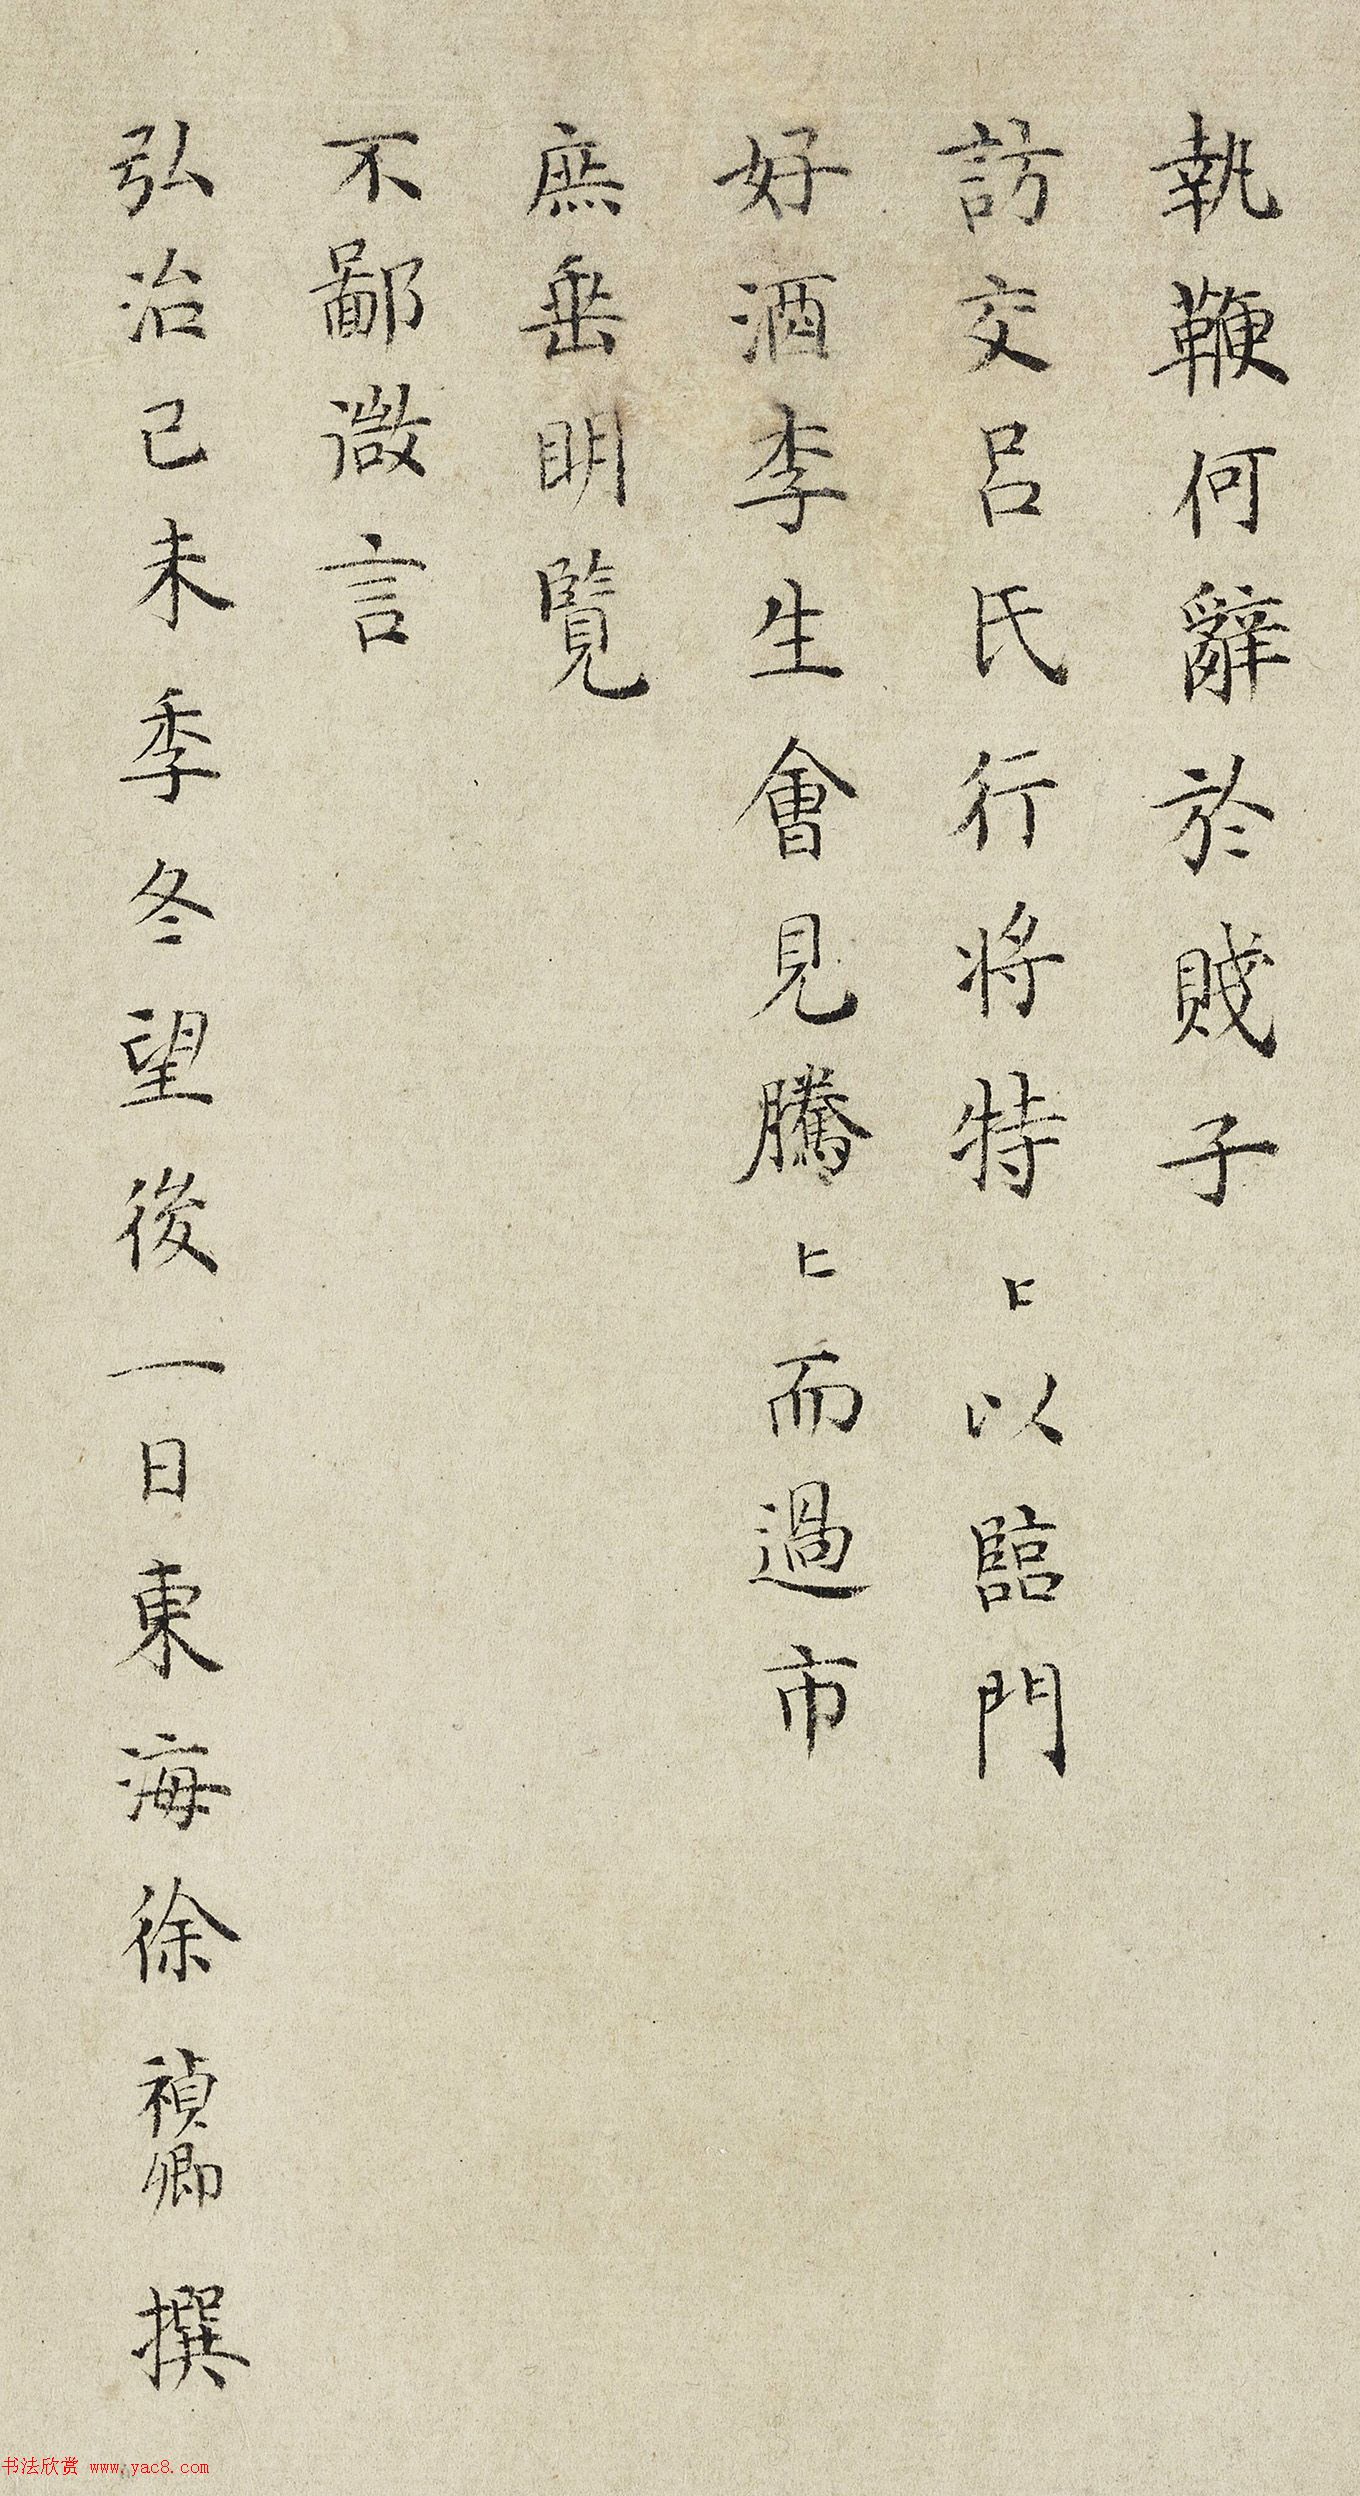 執鞭何辭於賤子
訪交呂氏行將特〻以臨門
好酒李生會見騰〻而過市
庶垂明覽
不鄙微言
弘治己未季冬望後一日東海徐禎卿撰
书法欣赏 www.yac8.com